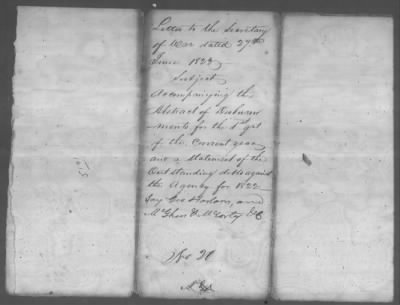 Letter to the Secretary
of War dated 27th
June 1822
Subject
Accompanying the
Abstract of Disburse
ments for the 1st qr
of the current year
and a Statement of the
Out standing debts against
the Agency for 1822
Say Geo
No 20